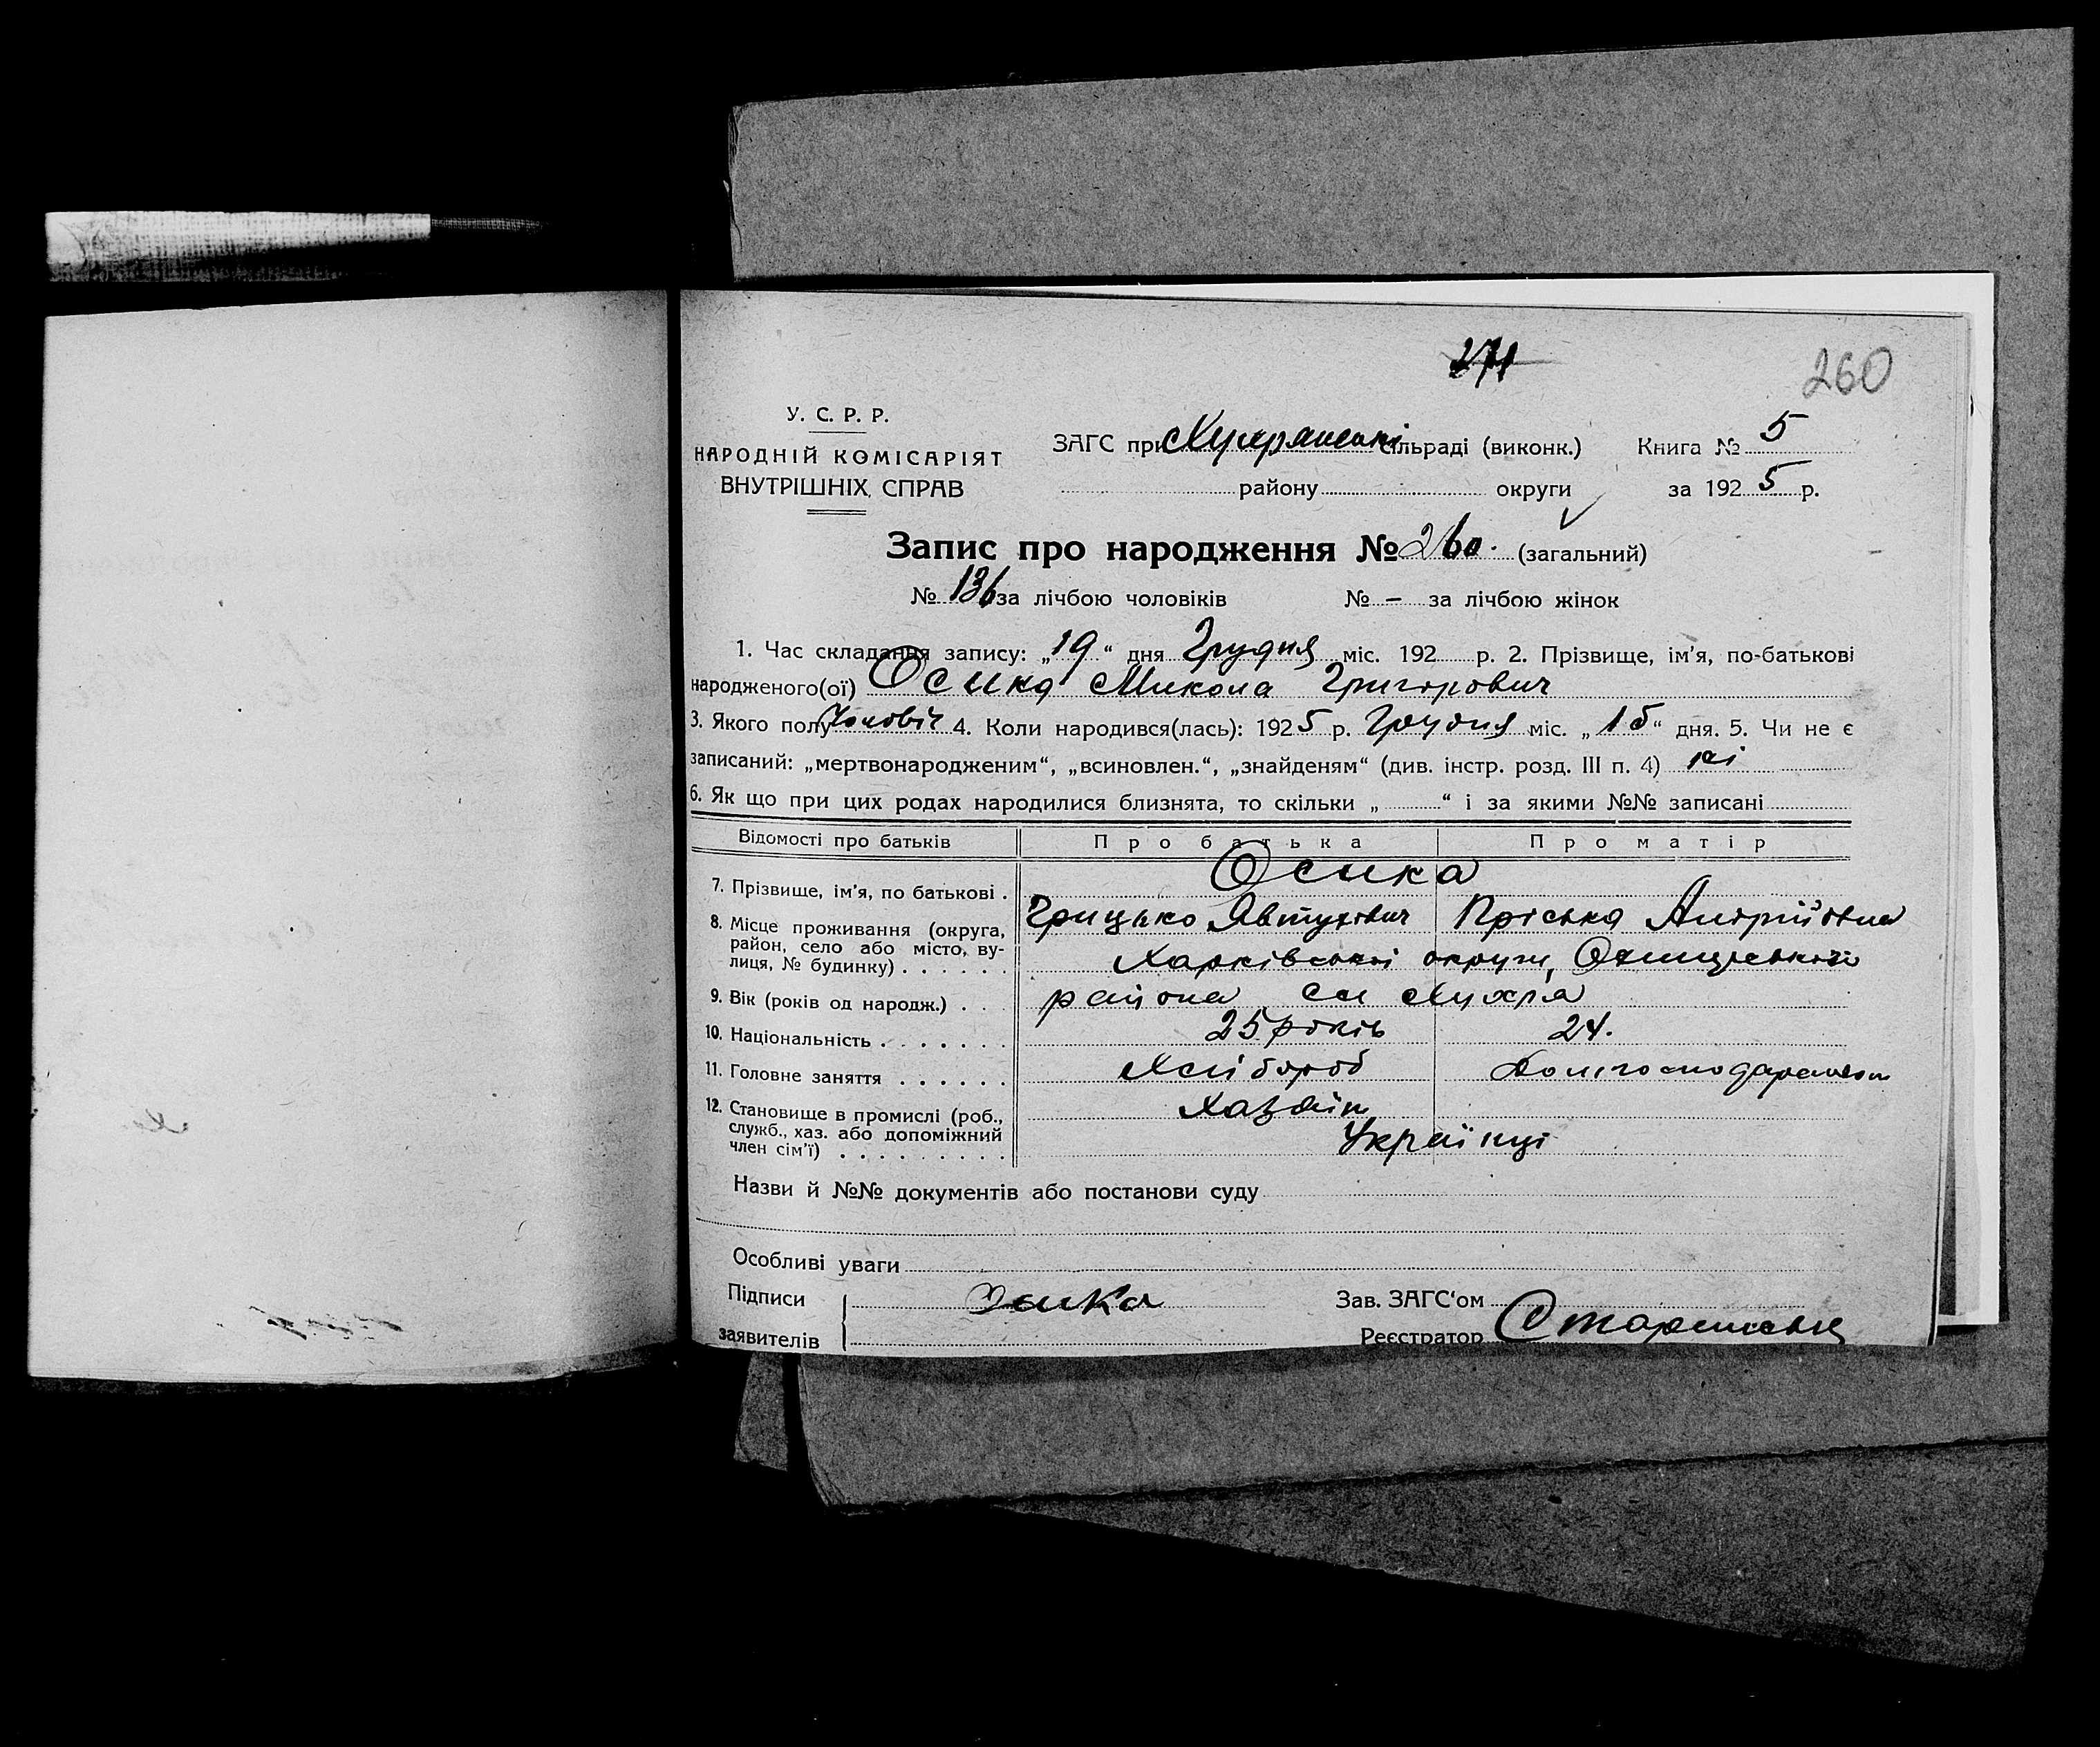 271
260
У. С. Р. Р.
НАРОДНІЙ КОМІСАРІЯТ
ВНУТРІШНІХ СПРАВ
ЗАГС при сільраді (виконк.) Книга № 5
району округи за 1925 р.
Запис про народження № 260. (загальний)
№ 136 за лічбою чоловіків № — за лічбою жінок
1. Час складання запису: „19“ дня Грудня міс. 192 р. 2. Прізвище, ім'я, по-батькові
народженого(ої) Осика Микола Григорович
3. Якого полу Чоловіч 4. Коли народився(лась): 1925 р. Грудня міс. „15“ дня. 5. Чи не є
записаний: „мертвонародженим“, „всиновлен.“, „знайденям“ (див. інстр. розд. III п. 4) ні
6. Як що при цих родах народилися близнята, то скільки „ “ і за якими №№ записані
Відомості про батьків Про батька Про матір
Осика
7. Прізвище, ім'я, по батькові .
Грицько Явтухович Пріська Андріївна
8. Місце проживання (округа,
район, село або місто, ву-
лиця, № будинку) . . . . . .
Харківської округи,
района Хухра
9. Вік (років од народж.) . . .
25 років 24.
10. Національність . . . . . . .
11. Головне заняття . . . . . .
Хлібороб
12. Становище в промислі (роб.,
служб., хаз. або допоміжний
член сім'ї) . . . . . . . . .
Хазяїн
Українці
Назви й №№ документів або постанови суду
Особливі уваги
Підписи
заявителів
Осика
Зав. ЗАГС'ом
Реєстратор